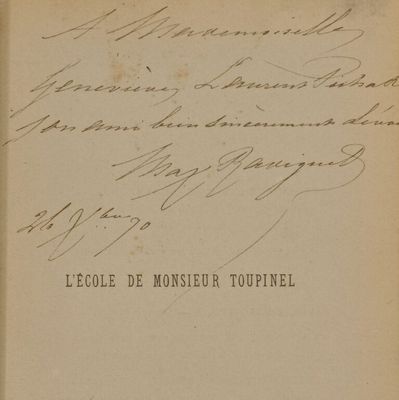 A Mademoiselle
Geneviève Laurent Pichat
son ami bien sincèrement dévoué
Max Radiguet
26 Xbre 90
L'ÉCOLE DE MONSIEUR TOUPINEL